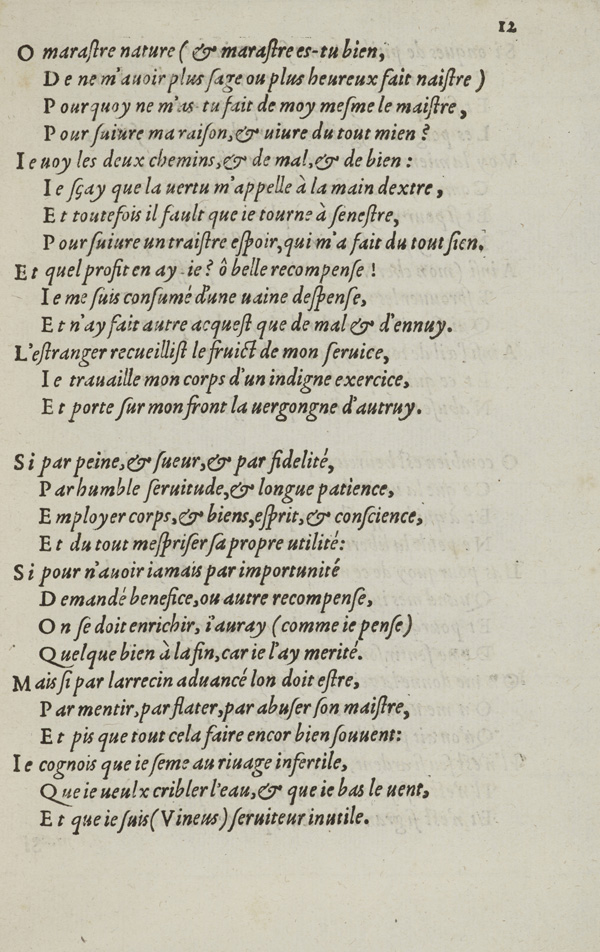 12
O maraſtre nature (& maraſtre es-tu bien,
De ne m'auoir plus ſage ou plus heureux fait naiſtre)
Pourquoy ne m'as-tu fait de moy meſme le maiſtre,
Pour ſuiure ma raiſon, & uiure du tout mien?
Ie uoy les deux chemins, & de mal, & de bien:
Ie ſçay que la uertu m'appelle à la main dextre,
Et toutefois il fault que ie tourne à ſeneſtre,
Pour ſuiure un traiſtre eſpoir, qui m'a fait du tout ſien.
Et quel profit en ay-ie? ô belle recompenſe!
Ie me ſuis conſumé d'une uaine deſpenſe,
Et n'ay fait autre acqueſt que de mal & d'ennuy.
L'eſtranger recueilliſt le fruict de mon ſeruice,
Ie trauaille mon corps d'un indigne exercice,
Et porte ſur mon front la uergongne d'autruy.
Si par peine, & ſueur, & par fidelité,
Par humble ſeruitude, & longue patience,
Employer corps, & biens, eſprit, & conſcience,
Et du tout meſpriſer ſa propre utilité:
Si pour n'auoir iamais par importunité
Demandé benefice, ou autre recompenſe,
On ſe doit enrichir, i'auray (comme ie penſe)
Quelque bien à la fin, car ie l'ay merité.
Mais ſi par larrecin aduancé lon doit eſtre,
Par mentir, par flater, par abuſer ſon maiſtre,
Et pis que tout cela faire encor bien ſouuent:
Ie cognois que ie ſeme au riuage infertile,
Que ie ueulx cribler l'eau, & que ie bas le uent,
Et que ie ſuis (Vineus) ſeruiteur inutile.